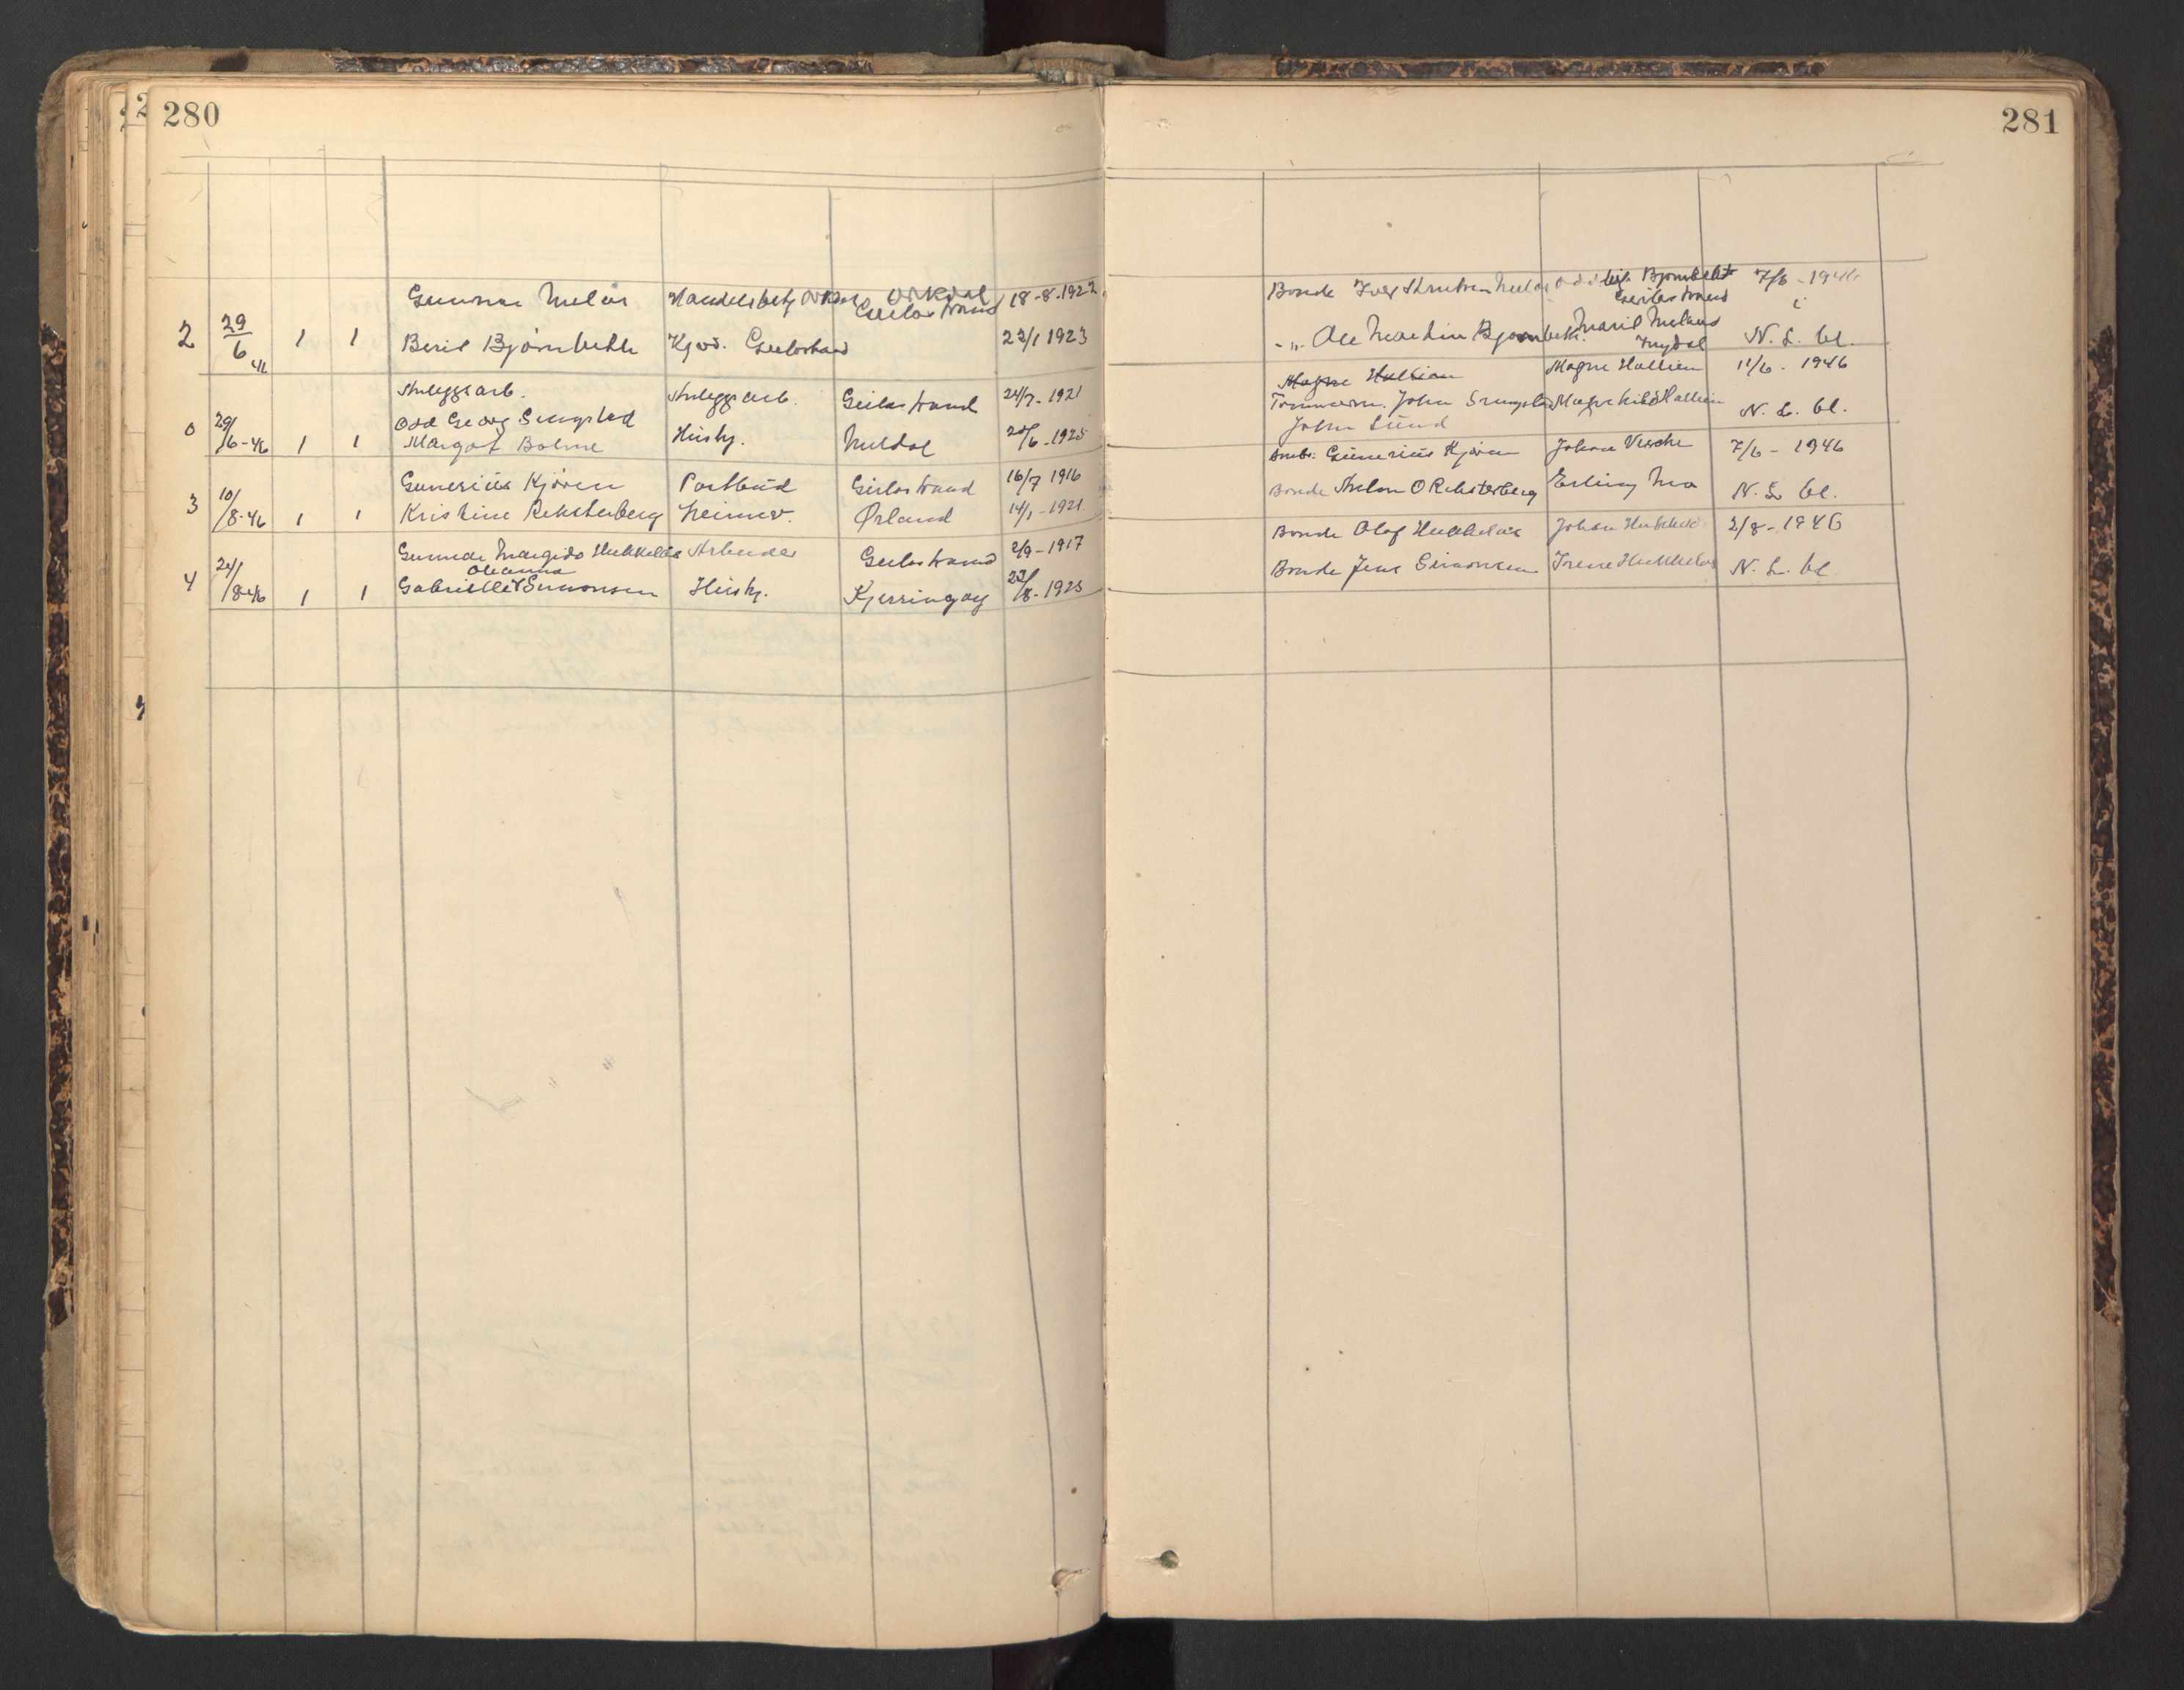 280
Gunnar Melås Handelsbetj Orkdal Orkdal 18-8-1922
Geilastrand
2 29/6 46 1 1 Beril Bjørnbekk Kjød. Geilastrand 23/1 1923
Anleggsarb. Anleggsarb. Geilastrand 24/7-1921
Odd Georg Sengstad
0 29/6-46 1 1 Margot Bolme Husg. Meldal 20/6-1925
Gunerius Kjøren Postbud Geilastrand 16/7 1916
3 10/8-46 1 1 Kristine Reksterberg heimev. Ørland 14/1-1921
Gunnar Margido Hukkelås Arbeider Geilastrand 2/9-1917
Oleanna
4 24/8-46 1 1 Gabrielle Simonsen Husg. Kjerringøy 22/8-1923
281
Bonde Iver Melås Odd Leif Bjørnbekk 7/6-1946
Geilastrand
-"- Ole Martin Bjørnbekk. Maril Melås
N. L. bl.
Magne Hallien Magne Hallien 11/6-1946
Tømmerm. John Sengstad Magnhild Hallien N. L. bl.
John Lund
Arb. Gunerius Kjøren Johan Vuseke 7/6-1946
Bonde Anton O Reksterberg Erling Moe N. L. bl.
Bonde Olaf Hukkelås Johan Hukkelås 2/8-1946
Bonde Jens Simonsen Irene Hukkelås N. L. bl.